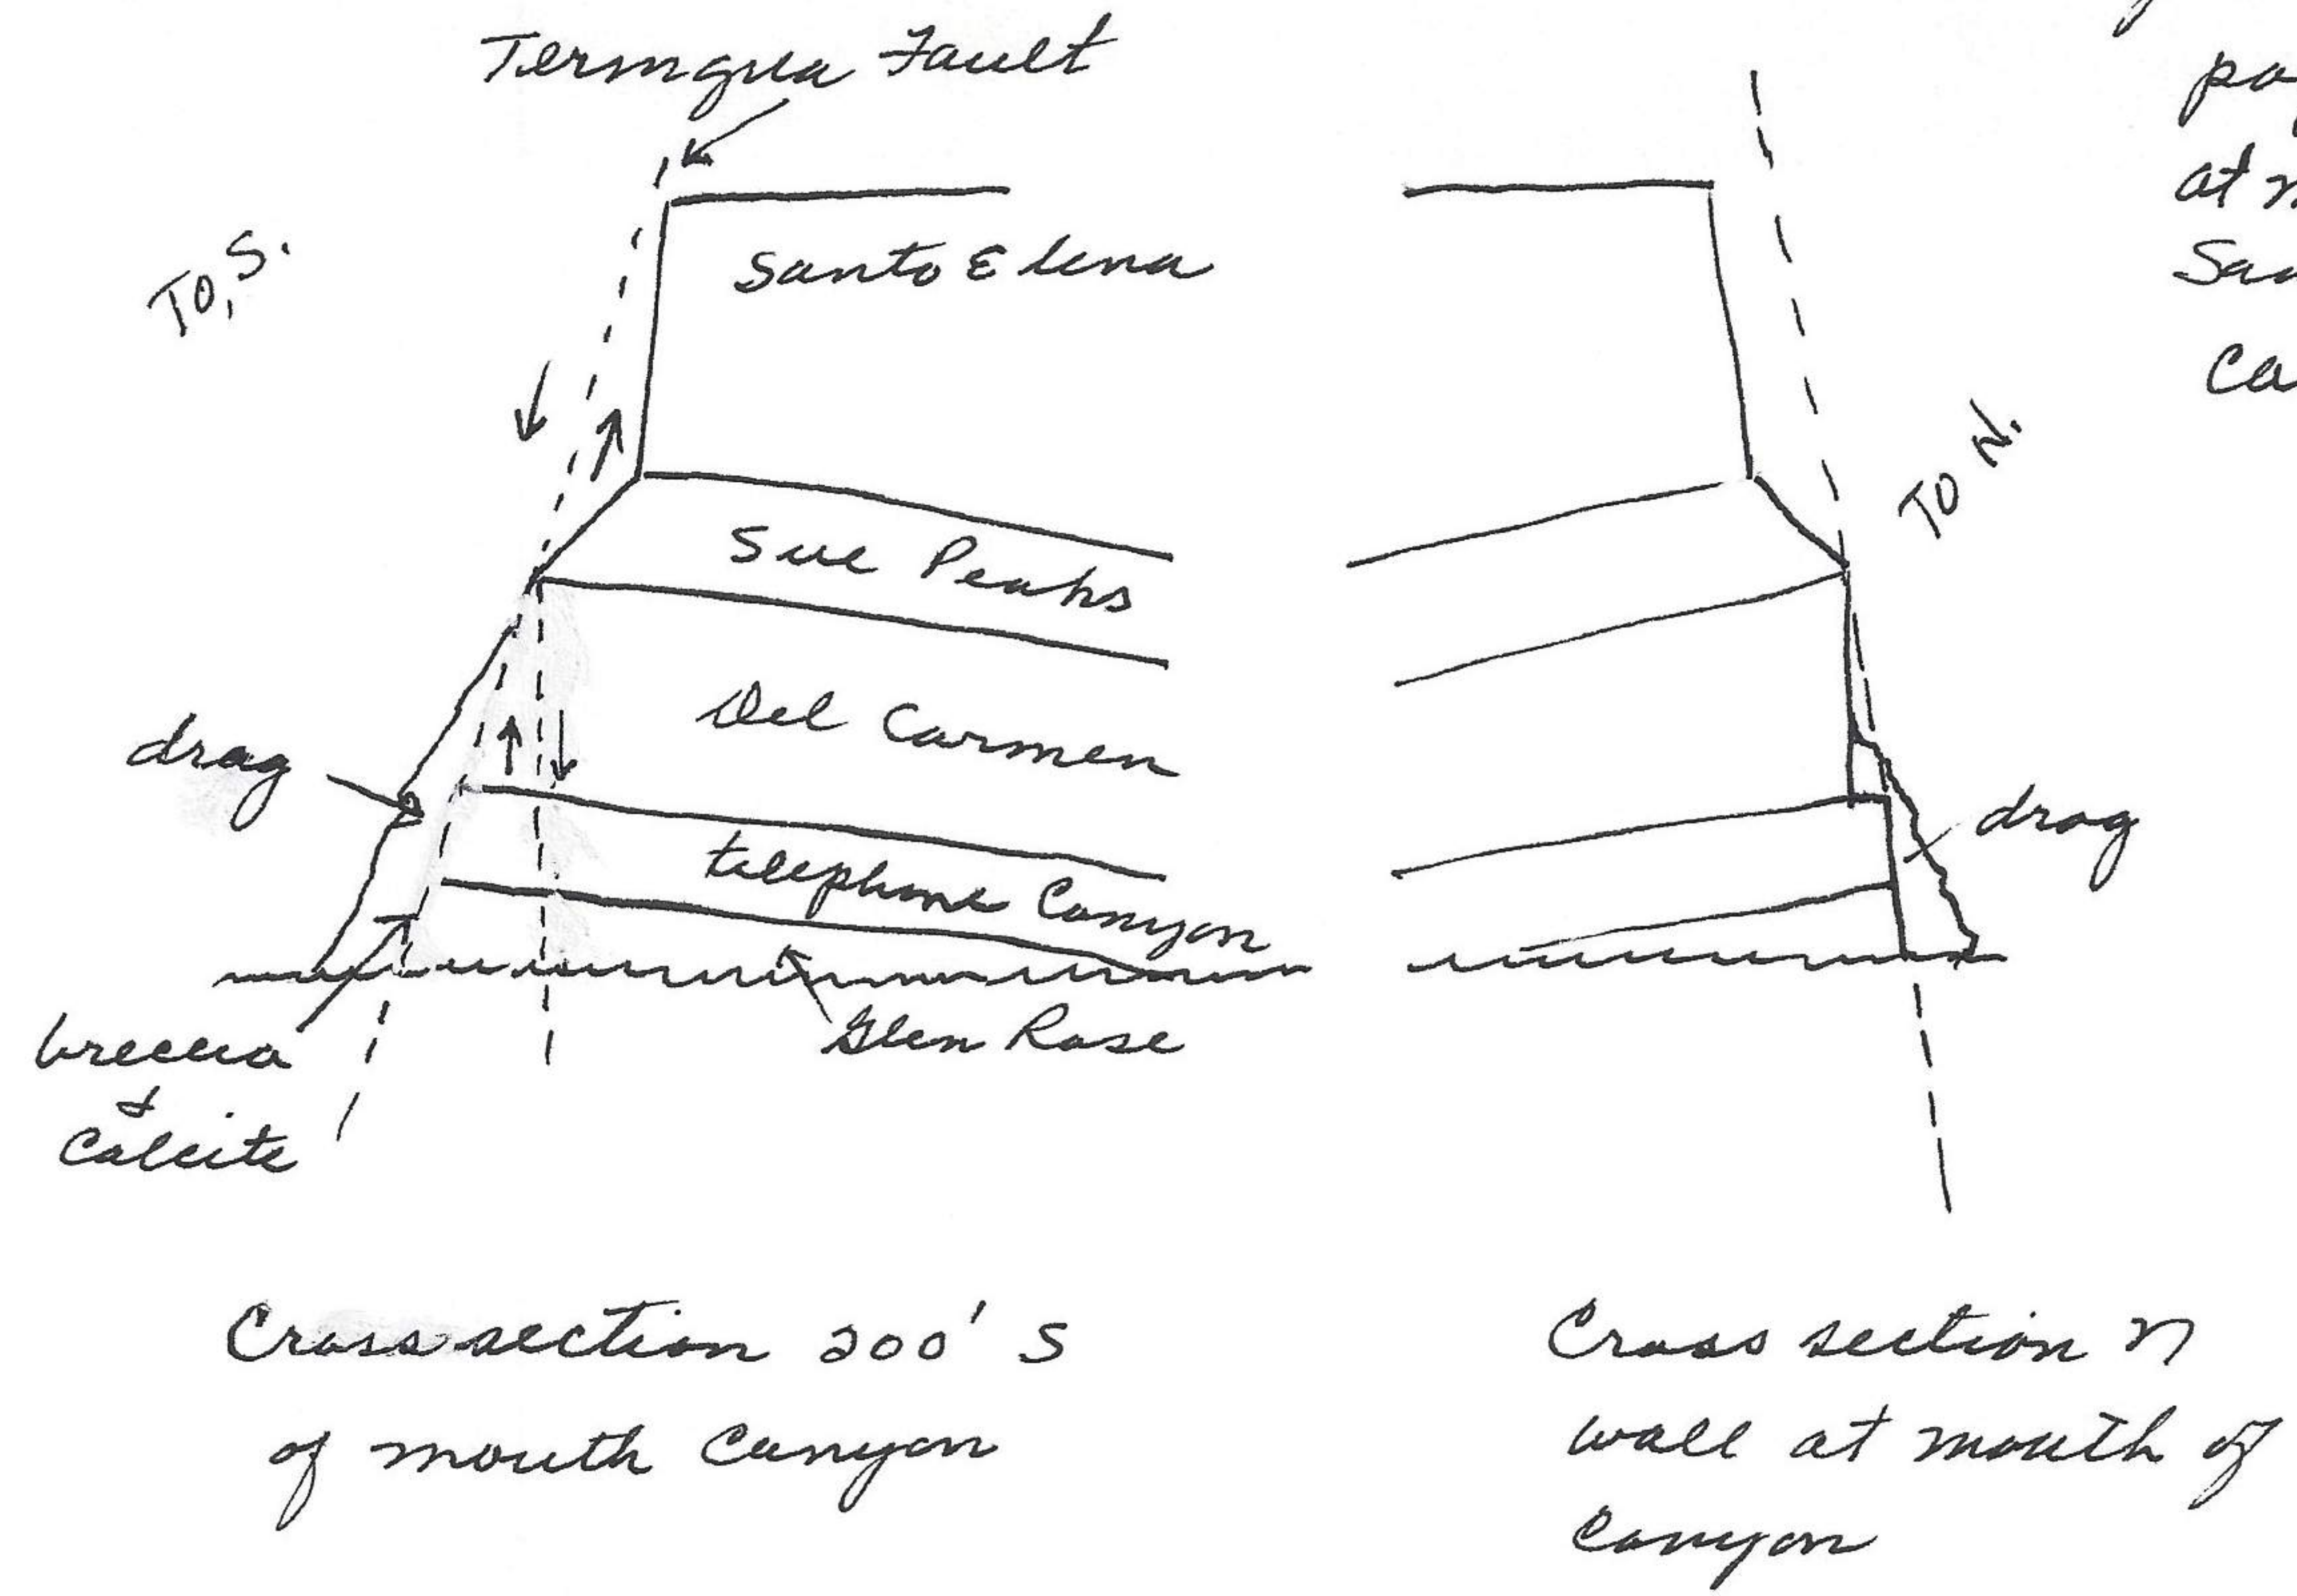 Terlingua Fault
To, S.
Santo Elena
Sue Peaks
Del Carmen
drag
Telephone Canyon
Glen Rose
breccia
+
Calcite
Cross section 200' S
of mouth Canyon
To N.
drag
Cross section N
wall at mouth of
Canyon
po
at m
Sa
Ca